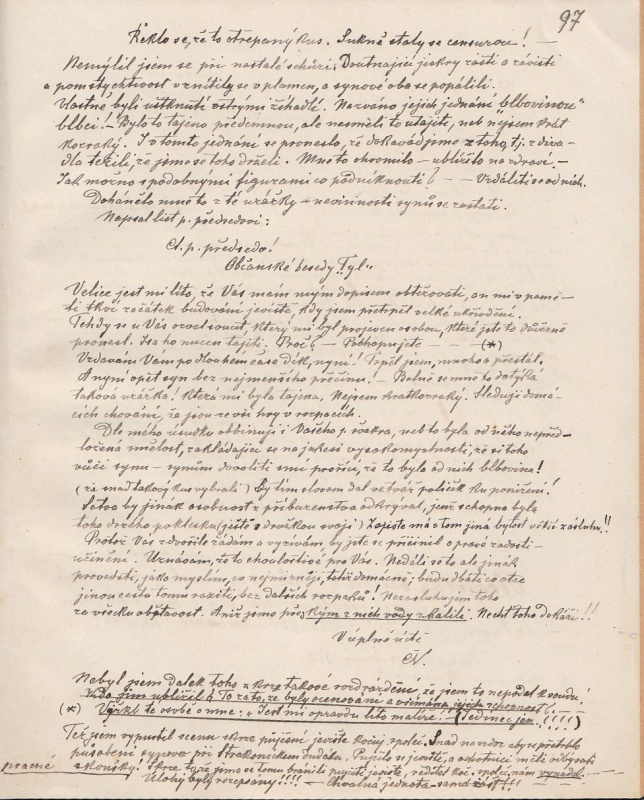 97
Řeklo se, že to otřepaný kus. Sukně staly se censurou! —
Nemýlil jsem se při nastalé schůzi. Doutnající jiskry zášti a závisti
a pomstychtivost vznítily se v plamen, a synové oba se popálili.
Vlastně byli uštknuti ostrými žihadly. Nazváno jejich jednání „blbovinou"
blbci! — Bylo to tajeno předemnou, ale nemohli to utajiti, neb nejsem krát
kozraký. I v tomto jednání se proneslo, že dokavád jsme z toho, t.j. z diva-
dla těžili, že jsme se toho drželi. Mně to chromilo — ublížilo na zdraví. —
Jak možno s podobnými figurami co podniknouti? — — Vzdáliti se od nich.
Doháněno mne to z té urážky — nevinnosti synů se zastati.
Napsal list p. předsedovi:
Ct. p. předsedo!
Občanské besedy „Tyl"
Velice jest mi líto, že Vás mám mým dopisem obtěžovati, an mi v pamě-
ti tkví začátek budování jeviště, kdy jsem přetrpěl velké ukřivdění.
Tehdy se u Vás ozval soucit, který mi byl projeven osobou, které jste to důvěrně
pronesl. Jsa ho nucen tajiti. Proč? — Pochopujete — — — (*)
Vzdávám Vám po dlouhém čase dík, nyní! Trpěl jsem, mnoho přestál.
A nyní opět syn bez nejmenšího příčinu! — Bolně se mne to dotýká
taková urážka! která mi byla tajena. Nejsem krátkozraký. Sleduji domá-
cích chování, že jsou ze vší hry v rozpacích.
Dle mého úsudku obviňuji i Vašeho p. švakra, neb to byla od něho nepřed-
ložená smělost, zakládající se na jakési vysokomyslnosti, že si toho
vůči synu — synům dovolil smí proříci, že to byla od nich blbovina!
(že snad takový kus vybrali) By tím slovem dal větvář políček ku ponížení!
Letos by jinák osobnost z příbuzenstva odkrýval, jenž schopna byla
toho drzého poklesku (ještě s družkou svojí) Zajisté má o tom jiná bytost větší zásluhu!!
Protož Vás zdvořile žádám a vyzívám, by jste se přičinil o pravé zadosti-
učinění. Uznávám, že to choulostivé pro Vás. Nedáli se to ale jinak
provedsti, jako myslím, co nejmírněji, totiž domácně; budu dbáti co otec
jinou cestu tomu raziti, bez dalších rozpaků! Nezasluhujem toho
za všecku obětavost. Aniž jsme před kým z nich vody zkalili. Nechť toho dokáží!!
V úplné úctě
ČN.
Nebyl jsem dalek toho z krze takové rozdráždění, že jsem to nepodal k soudu!
Kdo jim ublížil? To za to, že byly oceňovány a všímána jejich schopnost! —
(*) Vyřkl té osobě o mne: „Jest mi opravdu líto malíře. — (Jedinec jen !!!!)
Též jsem vypustil scenu skrze půjčení jeviště kočuj. společ. Snad na vzdor aby se přetáhlo
působení synovo při Strakonickém dudáku. Půjčilo se jeviště, a ochotníci měli odbývati
pracně zkoušky. Skrze to, že jsme v tomu bránili půjčiti jeviště, ředitel koč. společ. nám vynadal. —
Úlohy byly rozepsány!!!! — Chvalná jednota — samá zášť!!!